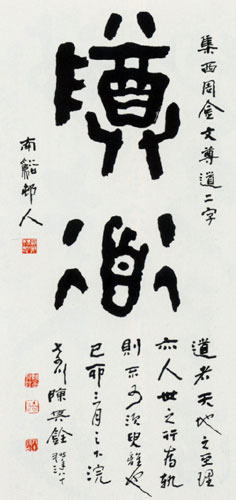 集西周金文尊道二字
尊道
南谿邨人
道者天地之至理
亦人世之行為軌
則不可須臾離也
己卯三月之下浣
陳其銓